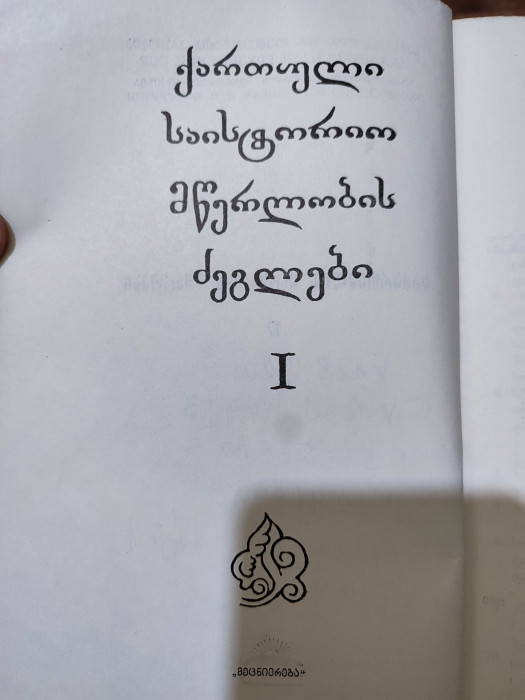 ქართული
საისტორიო
მწერლობის
ძეგლები
I
„მეცნიერება“